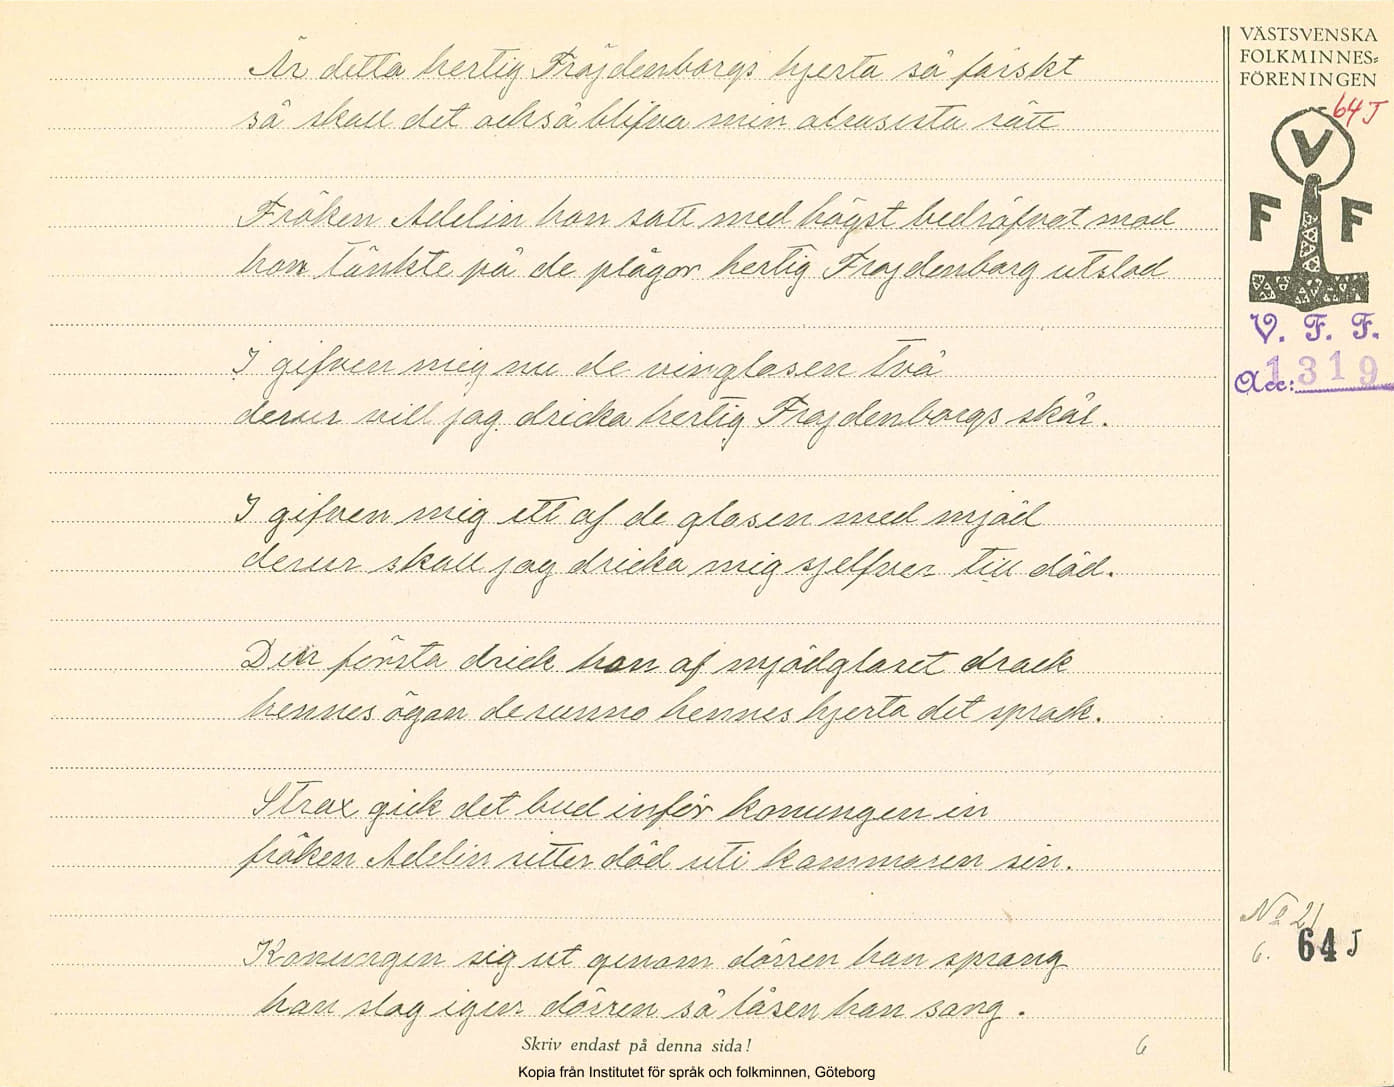 Är detta hertig Fröjdenborgs hjerta så färskt
så skall det också blifva min dödrasista rätt
Fröken Adelin hon satt med högst bedröfvat mod
hon tänkte på de plågor hertig Frojdenborg utstod
I gifven mig nu de vinglasen två
derur vill jag dricka hertig Frojdenborgs skål.
I gifven mig ett af de glasen med mjöd
derur skall jag dricka mig sjelfver till död.
Den första drick hon af mjödglaset drack
hennes ögon de runno hennes hjerta det sprack.
Strax gick det bud inför konungen in
fröken Adelin sitter död uti kammaren sin.
Konungen sig ut genom dörren han sprang
han slog igen dörren så låsen han sang.
Skriv endast på denna sida!
6
Kopia från Institutet för språk och folkminnen, Göteborg
VÄSTSVENSKA
FOLKMINNES-
FÖRENINGEN
64 J
V
F F
V. F. F.
Acc: 1319
No 21
6. 64 J